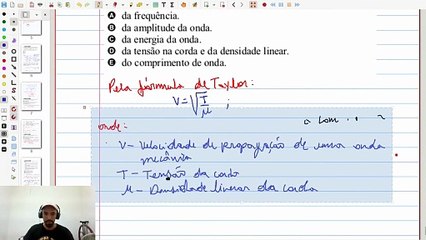 A da frequência.
B da amplitude da onda.
C da energia da onda.
D da tensão na corda e da densidade linear.
E do comprimento de onda.
Pela fórmula de Taylor:
V=√T/μ ;
onde:
V - Velocidade de propagação de uma onda
mecânica
T - Tensão da corda
μ - Densidade linear da corda